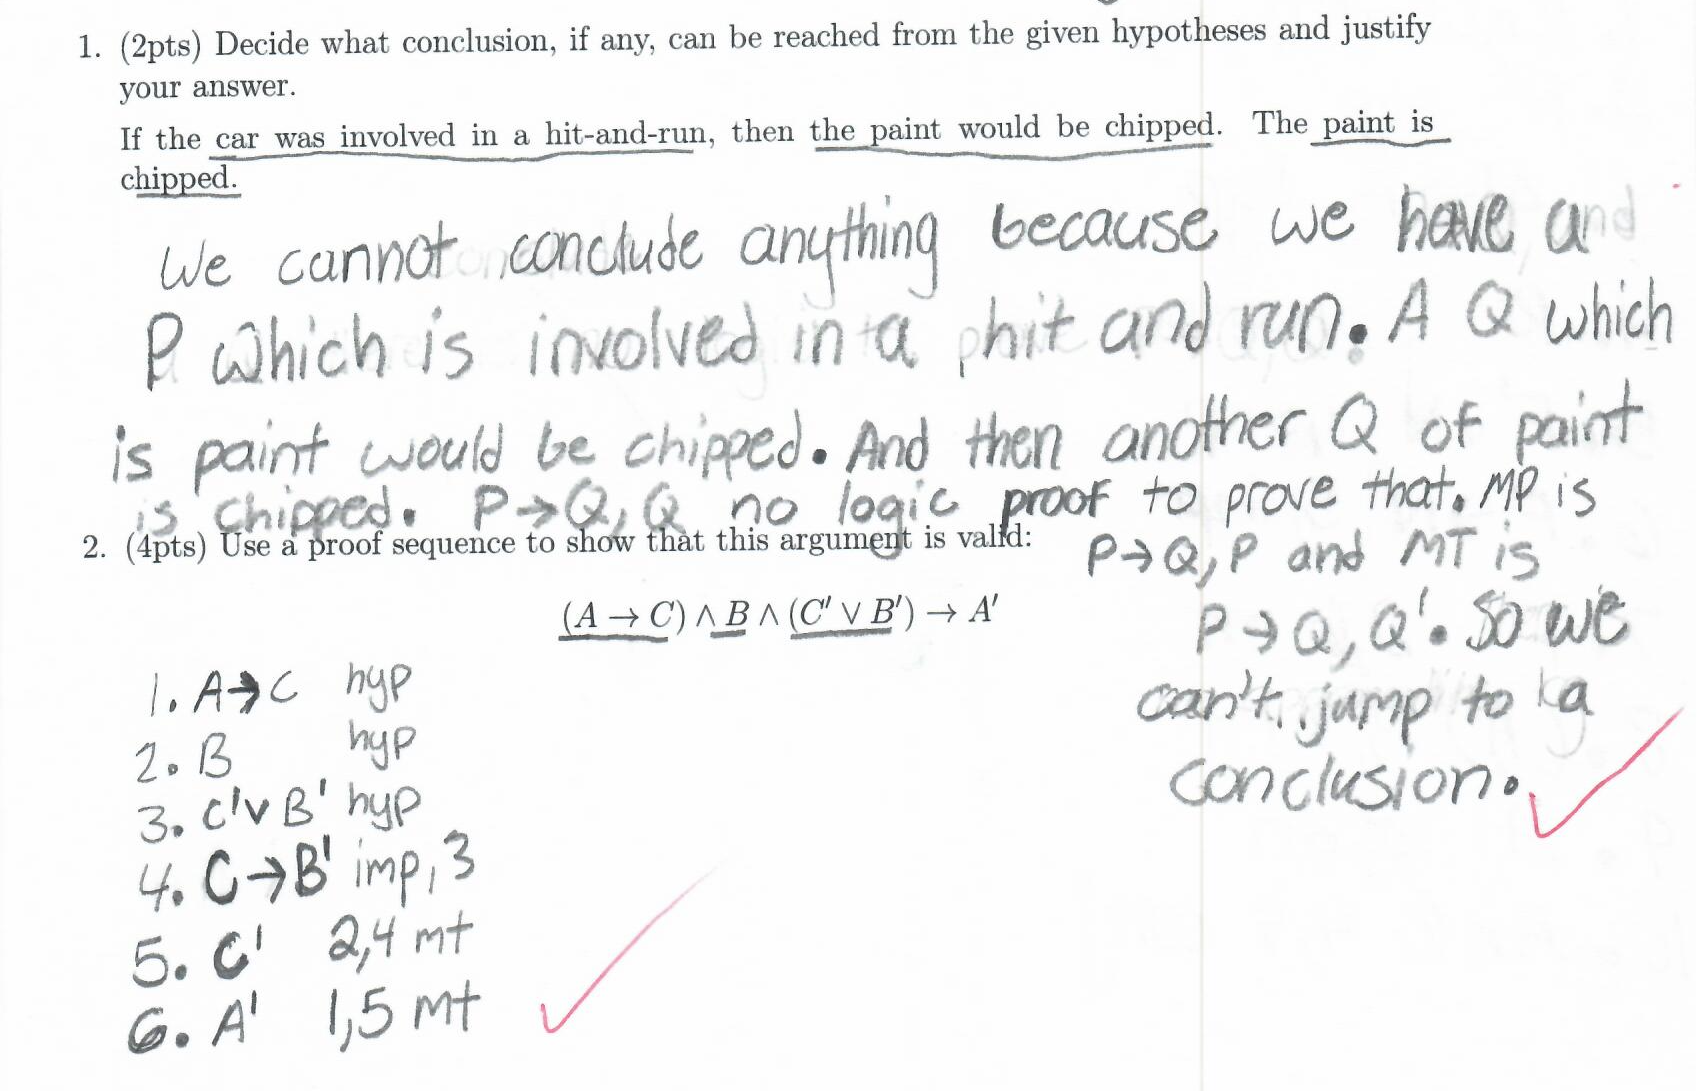 1. (2pts) Decide what conclusion, if any, can be reached from the given hypotheses and justify
your answer.
If the car was involved in a hit-and-run, then the paint would be chipped. The paint is
chipped.
We cannot conclude anything because we have a
P which is involved in a hit and run. A Q which
is paint would be chipped. And then another Q of paint
is chipped. P→Q, Q no logic proof to prove that. MP is
P→Q, P and MT is
P→Q, Q'. So we
can't jump to a
conclusion.
2. (4pts) Use a proof sequence to show that this argument is valid:
(A → C) ∧ B ∧ (C' ∨ B') → A'
1. A→C hyp
2. B hyp
3. C'∨B' hyp
4. C→B' imp, 3
5. C' 2,4 mt
6. A' 1,5 mt